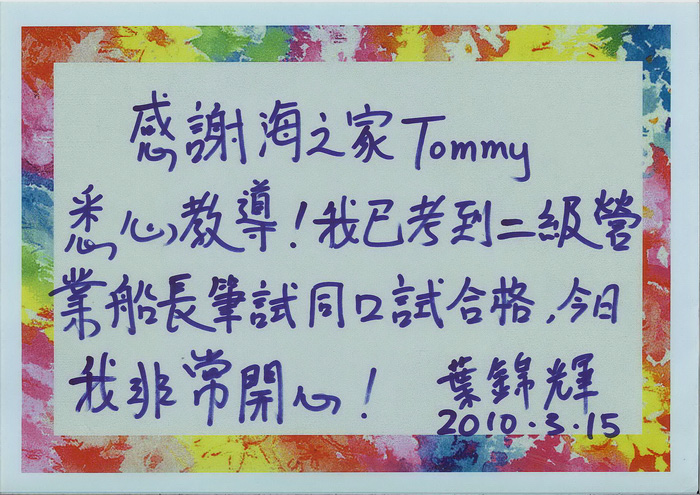 感謝海之家Tommy
悉心教導！我已考到二級營
業船長筆試同口試合格，今日
我非常開心！ 葉錦輝
2010.3.15